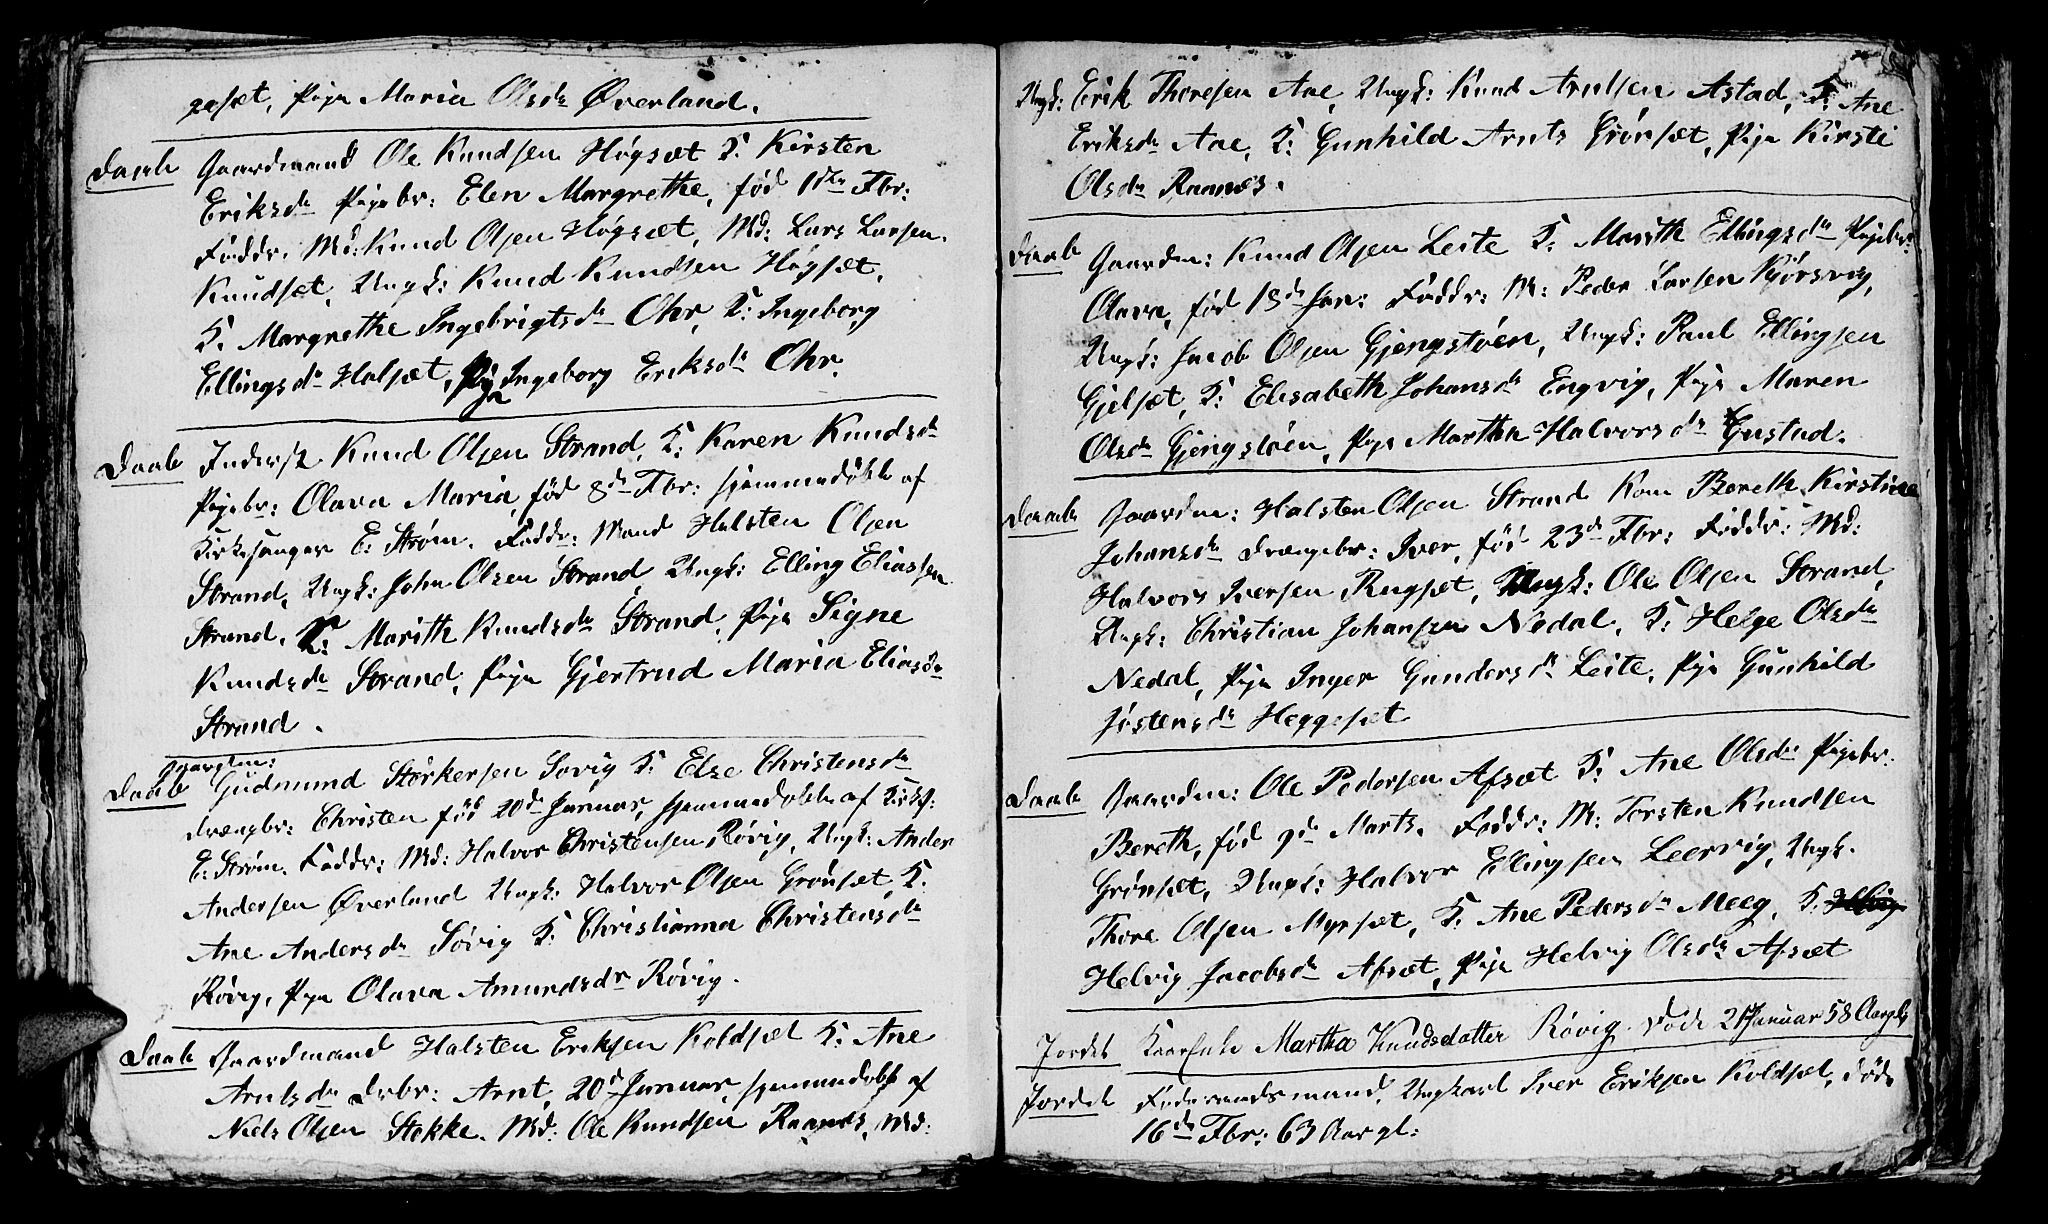 gesæt, Pige Maria Olsdr Øverland.
Daab Gaardmand Ole Knudsen Høgsæt K: Kirsten
Eriksdr Pigebr: Elen Margrethe, fød 1ste Fbr:
Faddr. Md: Knud Olsen Høgsæt, Md: Lars Larsen
Knudsæt, Ungk: Knud Knudsen Høgsæt,
K. Margrethe Ingebrigtsdr Ohr, K: Ingeborg
Ellingsdr Halsæt, Pige Ingeborg Eriksdr Ohr.
Daab Inderst Knud Olsen Strand, K: Karen Knudsdr
Pigebr: Olava Maria, fød 8de Fbr: hjemmedøbt af
Kirkesanger E: Strøm. Faddr: Mand Halsten Olsen
Strand, Ungk: John Olsen Strand, Ungk: Elling Eliassen
Strand, K: Marith Knudsdr Strand, Pige Signe
Knudsdr Strand, Pige Gjertrud Maria Eliasdr
Strand.
Gaardm:
Daab Gudmund Størkersen Sovig K: Else Christensdr
Drengbr: Christen fød 20de Januar, hjemmedøbt af Kirks:
E: Strøm. Faddr: Md: Halvor Christensen Røvig, Ungk: Anders
Andersen Øverland Ungk: Halvor Olsen Grønsæt, K.
Ane Andersdr Søvig K: Christianna Christensdr
Røvig, Pige Olava Amundsdr Røvig.
Daab Gaardmand Halsten Eriksen Koldsæt K: Ane
Arntsdr Drbr: Arnt, 20de Januar, hjemmedøbt af
Niels Olsen Stokke. Md: Ole Knudsen Raanes, Md:
Ungk: Erik Thoresen Aae, Ungk: Knud Arntsen Astad, K: Ane
Eriksdr Aae, K: Gunhild Arnts Grønsæt, Pige Kirsti
Olsdr Raanes.
Daab Gaardm: Knud Olsen Leite K: Marith Ellingsdr Pigebr:
Olava, fød 18de Jan: Faddr: M: Peder Larsen Kjørsvig,
Ungk: Jacob Olsen Gjengstøen, Ungk: Paul Ellingsen
Gjelsæt, K: Elisabeth Johansdr Engvig, Pige Maren
Olsdr Gjengstøen, Pige Martha Halvorsdr Gustad.
Daab Gaardm: Halsten Olsen Strand Kone Bereth Kirstine
Johansdr Drengebr: Iver, fød 23de Fbr: Faddr: Md:
Halvors Iversen Rugsæt, Ungk: Ole Olsen Strand,
Ungk: Christian Johansen Nedal, K: Helge Olsdr
Nedal, Pige Inger Gundersdr Leite, Pige Gunhild
Jostensdr Heggesæt
Daab Gaardm: Ole Pedersen Afsæt K: Ane Olsdr Pigebr:
Bereth, fød 9de Marts. Faddr: M: Torsten Knudsen
Grønsæt, Ungk: Halvor Ellingsen Leervig, Ungk.
Thore Olsen Myrsæt, K: Ane Pedersdr Meeg, K:
Helvig Jacobsdr Afsæt, Pige Helvig Olsdr Afsæt
Jordet Martha Knudsdatter Røvig. Døde 21 Januar 58 Aar gl.
Jordet Føderaadsmand, Ungkarl Iver Eriksen Koldsæt, Døde
16de Fbr: 63 Aar gl: